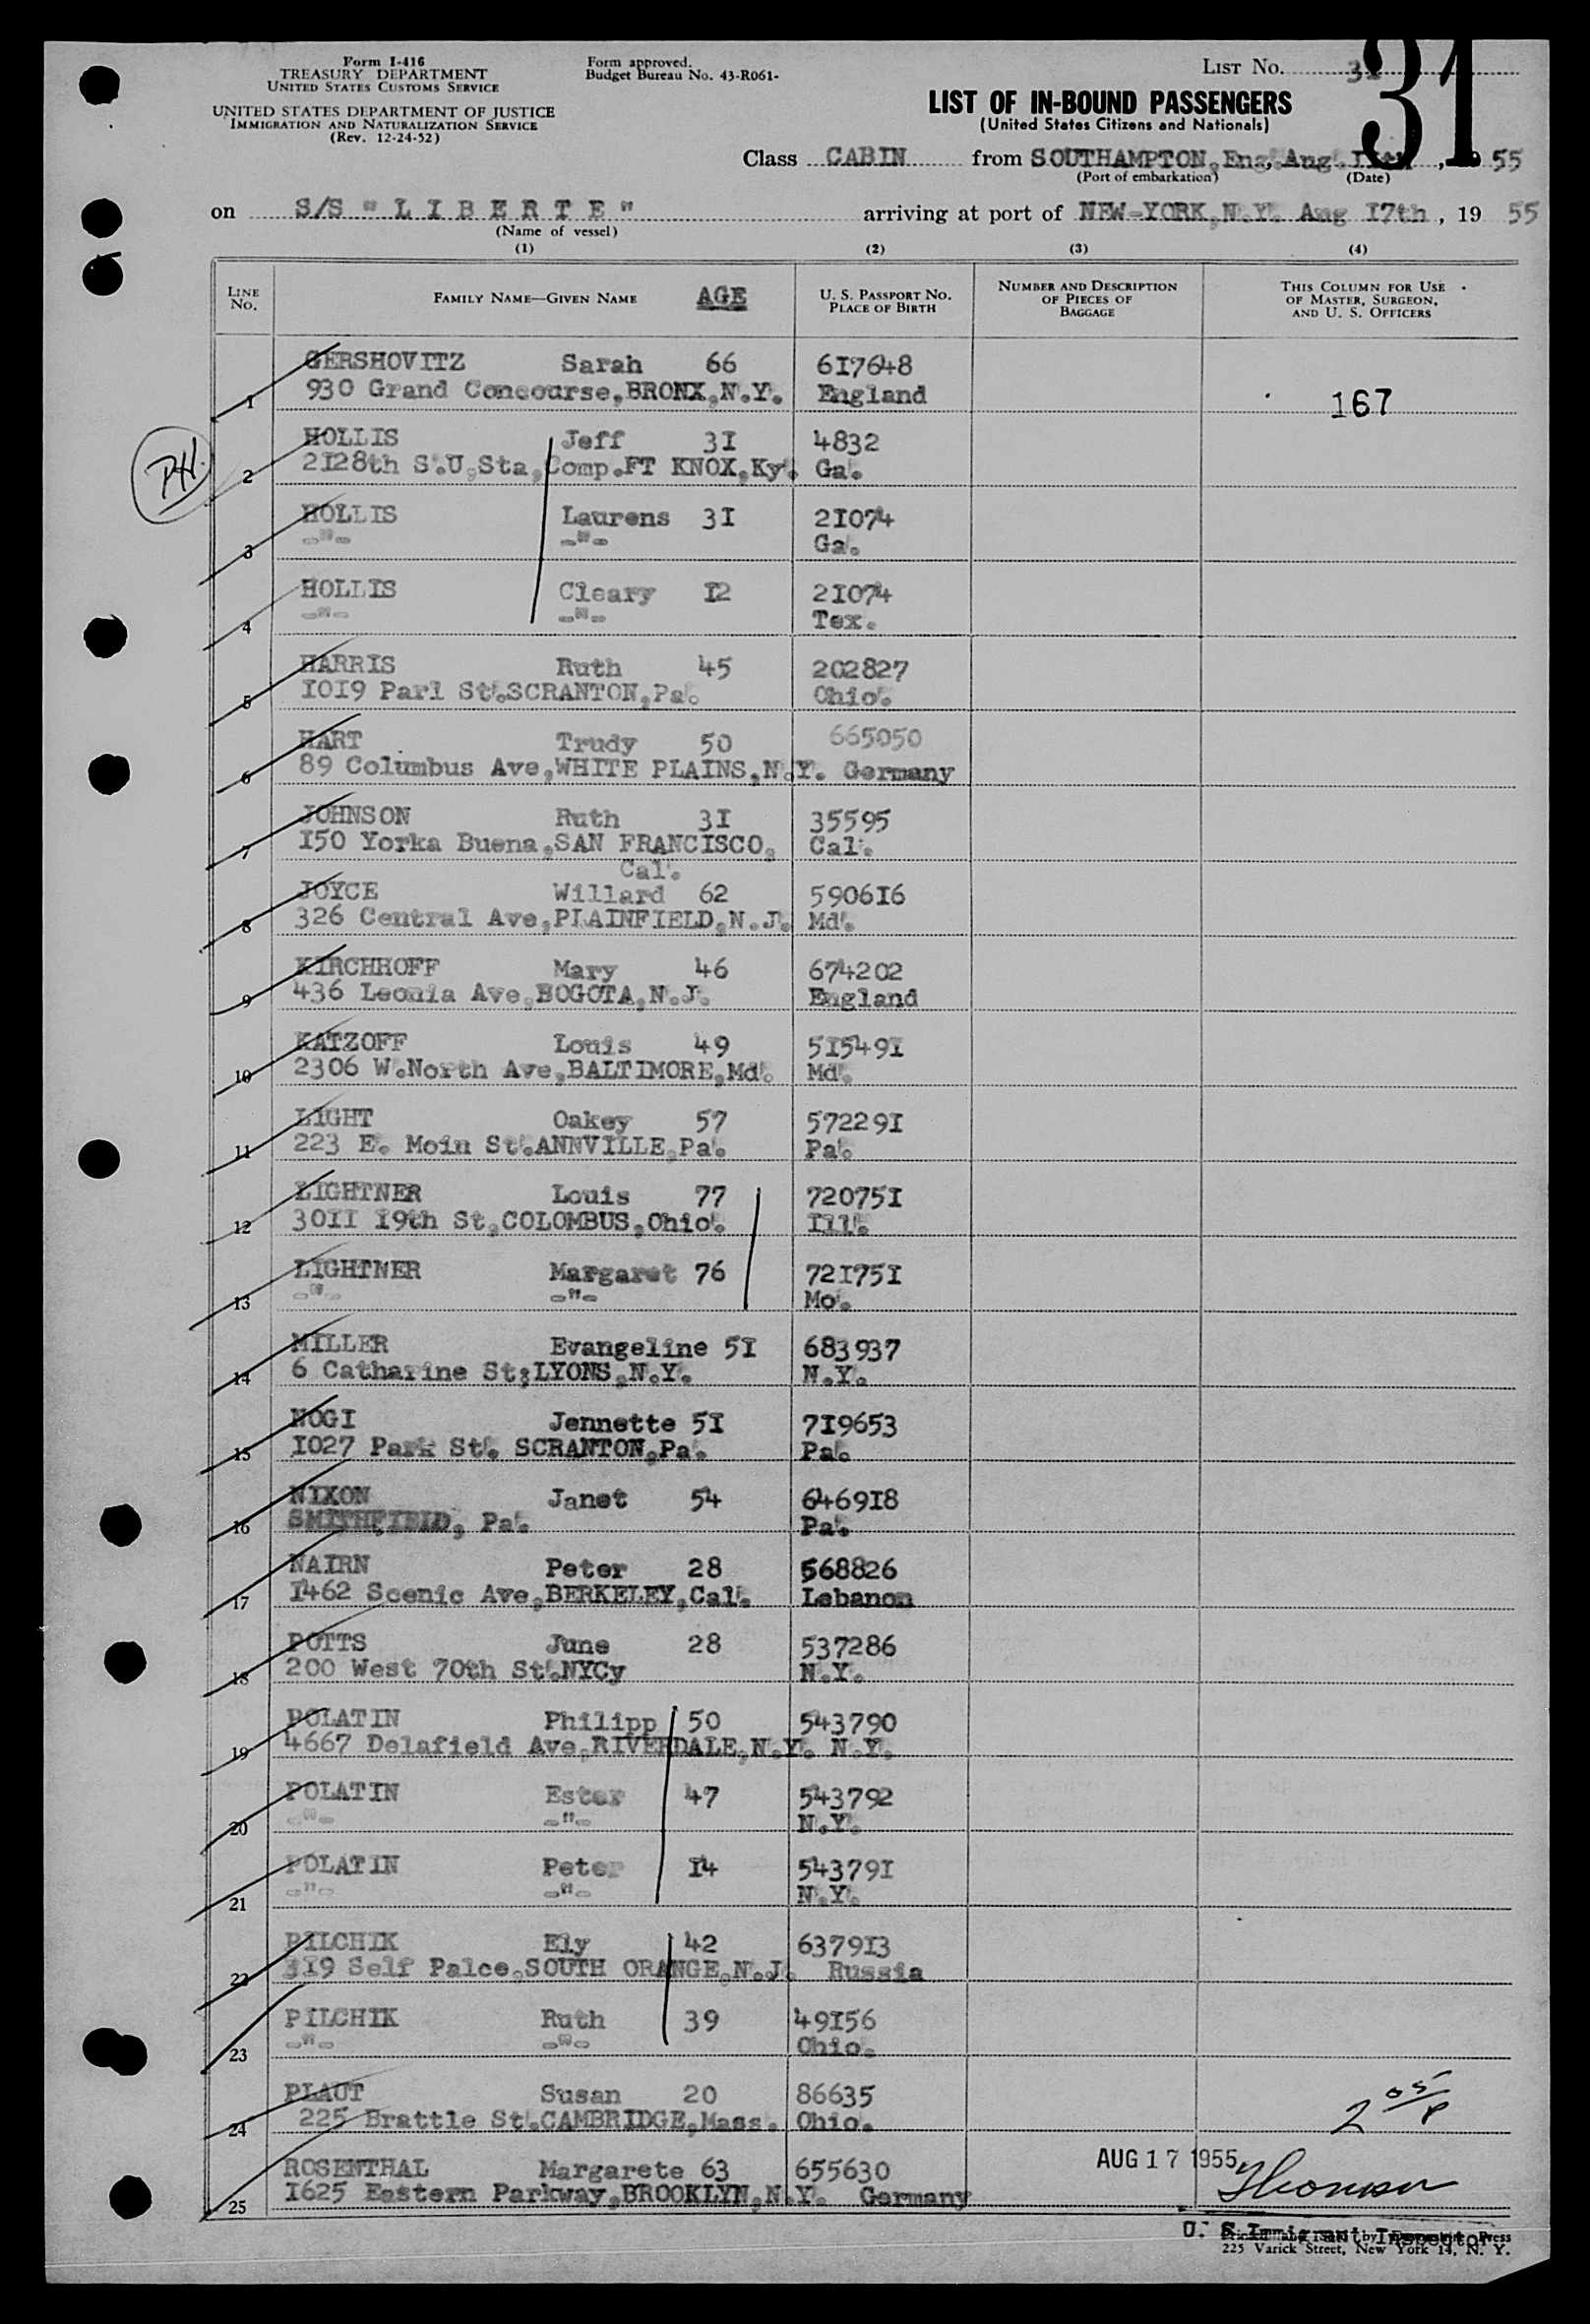 Form I-416
TREASURY DEPARTMENT
UNITED STATES CUSTOMS SERVICE
UNITED STATES DEPARTMENT OF JUSTICE
IMMIGRATION AND NATURALIZATION SERVICE
(Rev. 12-24-52)
Form approved.
Budget Bureau No. 43-R061-
LIST NO. 31
31
LIST OF IN-BOUND PASSENGERS
(United States Citizens and Nationals)
Class CABIN from SOUTHAMPTON, Eng, Aug. 11th, 1955
(Port of embarkation) (Date)
on S/S "LIBERTE" arriving at port of NEW-YORK, N.Y. Aug 17th, 19 55
(Name of vessel)
(1) (2) (3) (4)
LINE NO. FAMILY NAME—GIVEN NAME AGE U. S. PASSPORT NO. PLACE OF BIRTH NUMBER AND DESCRIPTION OF PIECES OF BAGGAGE THIS COLUMN FOR USE OF MASTER, SURGEON, AND U. S. OFFICERS
GERSHOVITZ Sarah 66 617648
1 930 Grand Concourse, BRONX, N.Y. England 167
PH.
HOLLIS Jeff 31 4832
2 2128th S.U, Sta, Comp. FT KNOX, Ky. Ga.
HOLLIS Laurens 31 21074
3 -"- -"- Ga.
HOLLIS Cleary 12 21074
4 -"- -"- Tex.
HARRIS Ruth 45 202827
5 1019 Parl St. SCRANTON, Pa. Ohio.
HART Trudy 50 665050
6 89 Columbus Ave, WHITE PLAINS, N.Y. Germany
JOHNSON Ruth 31 35595
7 150 Yorka Buena, SAN FRANCISCO, Cal.
Cal.
JOYCE Willard 62 590616
8 326 Central Ave, PLAINFIELD, N.J. Md.
KIRCHHOFF Mary 46 674202
9 436 Leonia Ave, BOGOTA, N.J. England
KATZOFF Louis 49 515491
10 2306 W. North Ave, BALTIMORE, Md. Md.
LIGHT Oakey 57 572291
11 223 E. Moin St. ANNVILLE, Pa. Pa.
LIGHTNER Louis 77 720751
12 3011 19th St, COLOMBUS, Ohio. Ill.
LIGHTNER Margaret 76 721751
13 -"- -"- Mo.
MILLER Evangeline 51 683937
14 6 Catharine St; LYONS, N.Y. N.Y.
NOGI Jennette 51 719653
15 1027 Park St. SCRANTON, Pa. Pa.
NIXON Janet 54 646918
16 SMITHFIELD, Pa. Pa.
NAIRN Peter 28 568826
17 1462 Scenic Ave, BERKELEY, Cal. Lebanon
POTTS June 28 537286
18 200 West 70th St. NYCy N.Y.
POLATIN Philipp 50 543790
19 4667 Delafield Ave, RIVERDALE, N.Y. N.Y.
POLATIN Ester 47 543792
20 -"- -"- N.Y.
POLATIN Peter 14 543791
21 -"- -"- N.Y.
PILCHIK Ely 42 637913
22 319 Self Palce, SOUTH ORANGE, N.J. Russia
PILCHIK Ruth 39 49156
23 -"- -"- Ohio.
PLAUT Susan 20 86635
24 225 Brattle St. CAMBRIDGE, Mass. Ohio.
2 05/P
ROSENTHAL Margarete 63 655630
25 1625 Eastern Parkway, BROOKLYN, N.Y. Germany
AUG 17 1955
U. S. Immigrant Inspector
225 Varick Street, New York 14, N. Y.